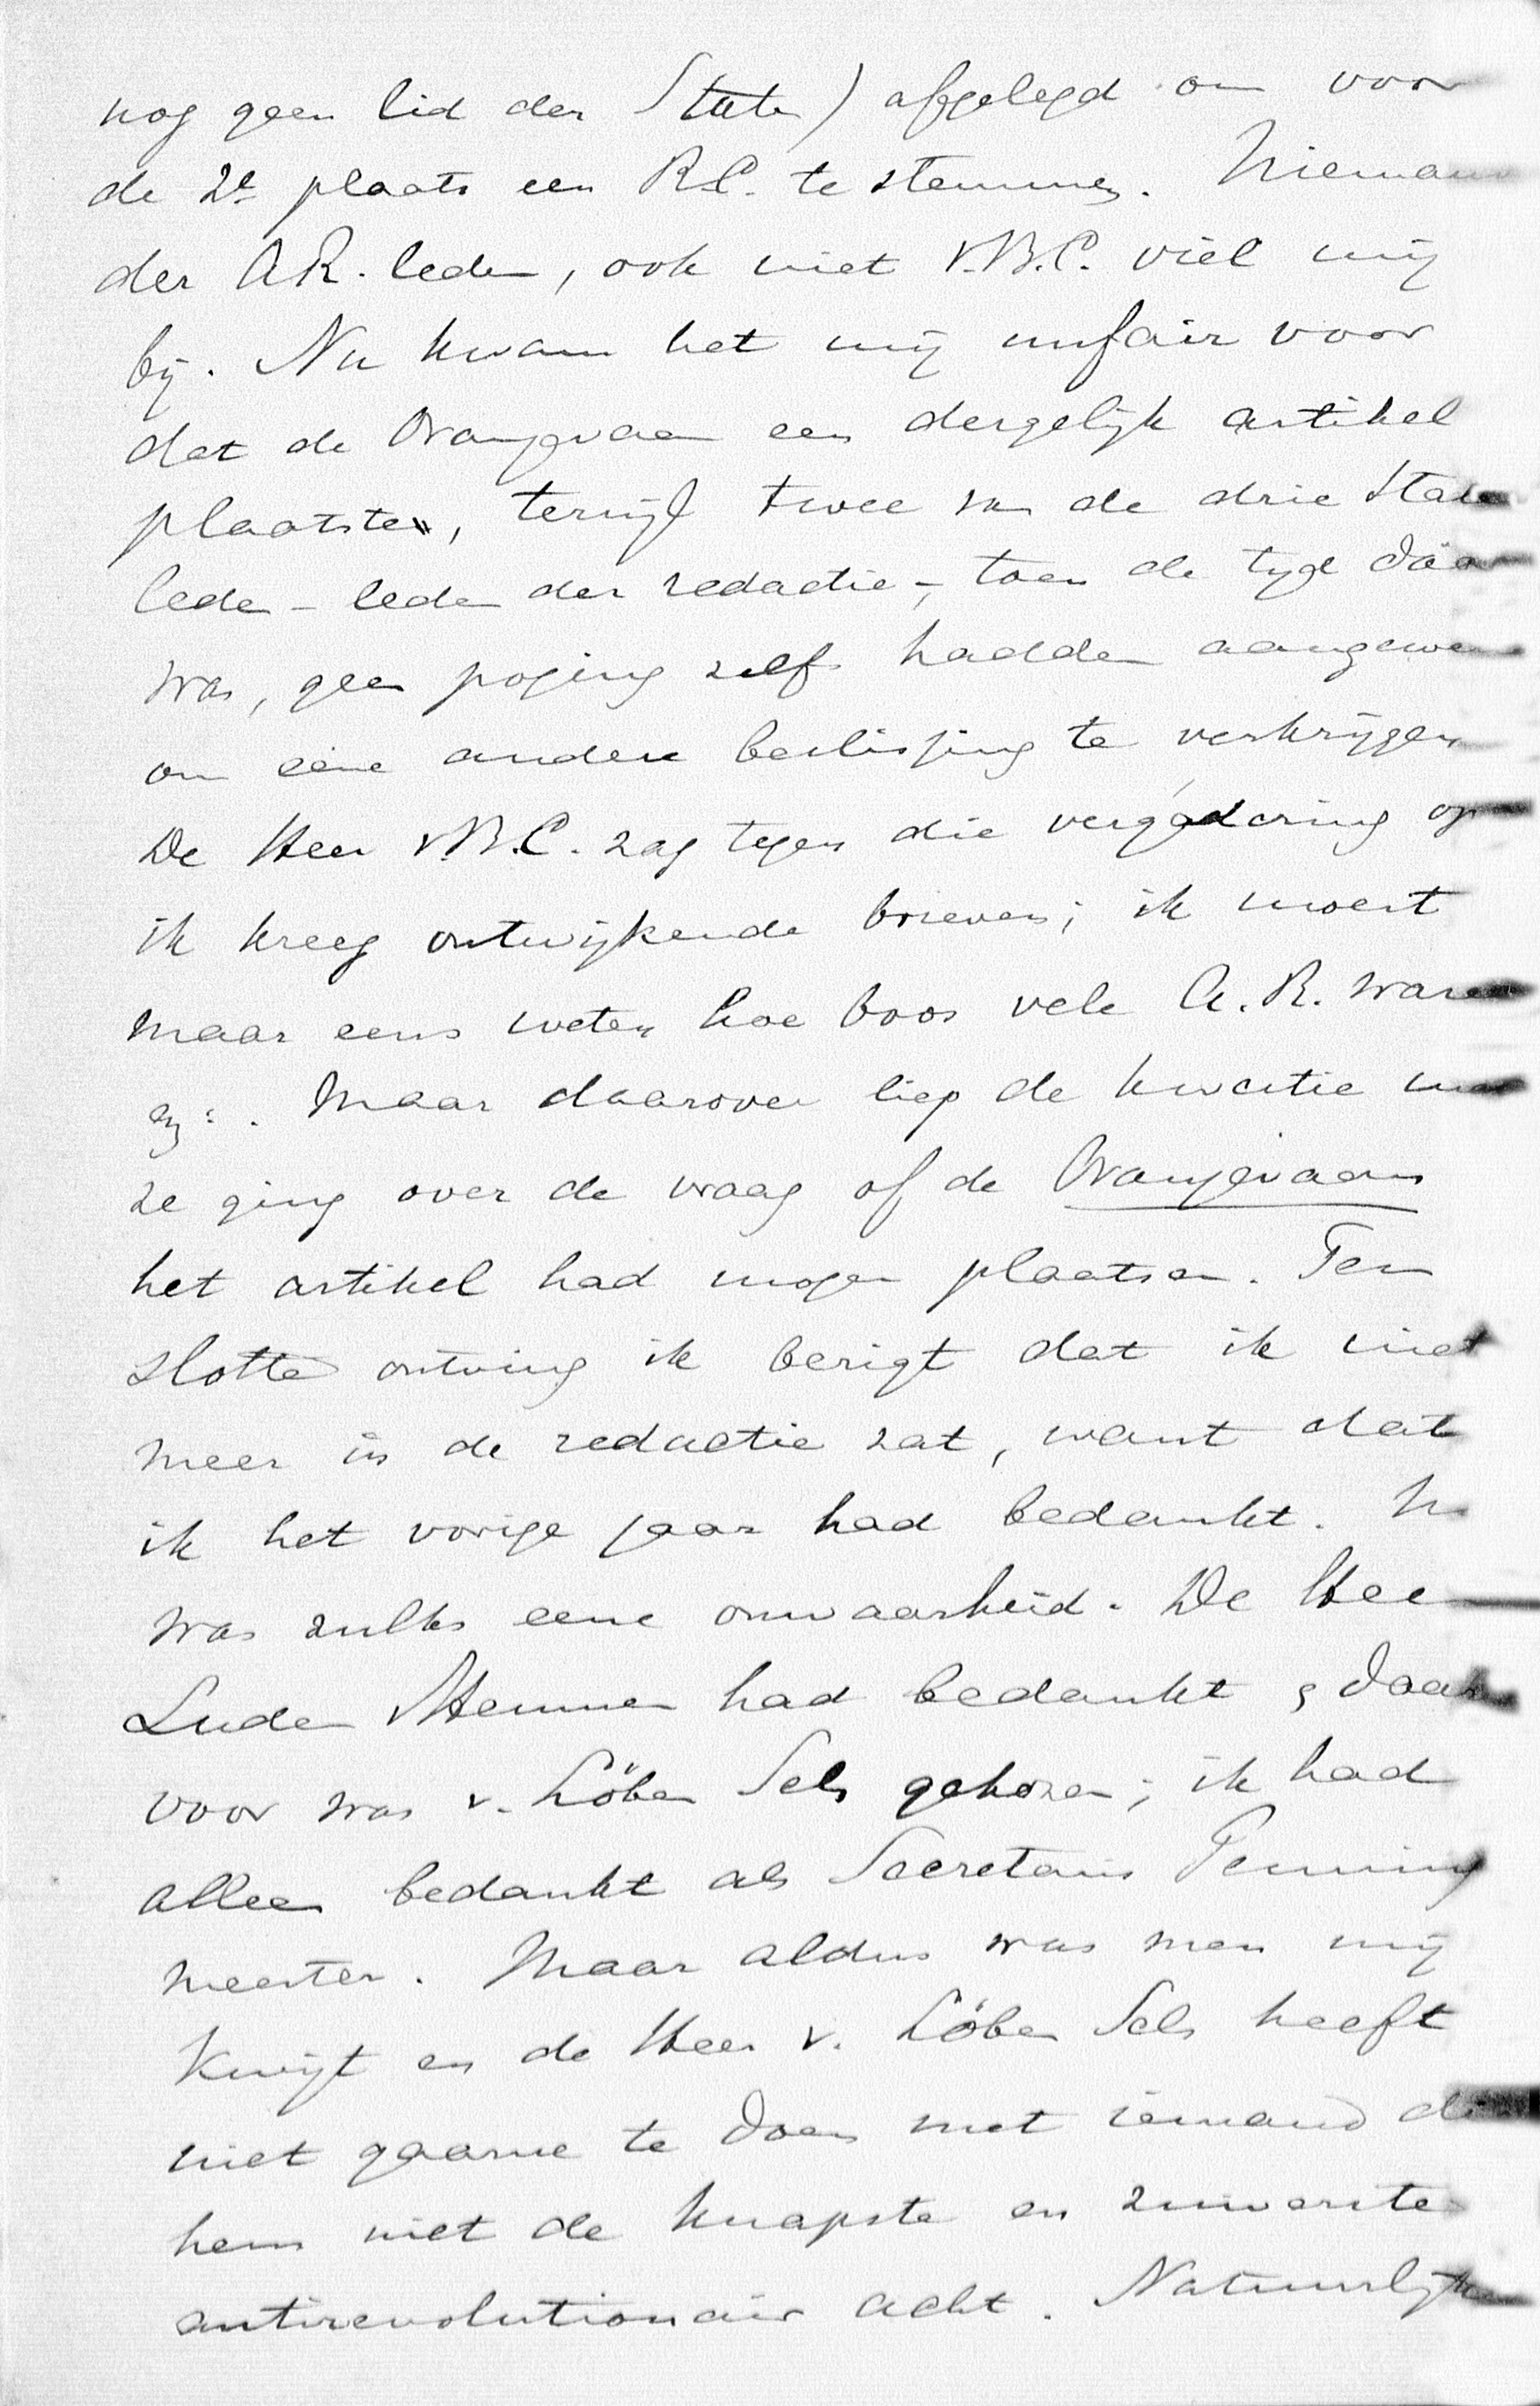 nog geen lid der Staten) afgelegd om voor
de 2e plaats een R.C. te stemmen. Niemand
der A.R. leden, ook niet v.B.C. viel mij
bij. Nu kwam het mij unfair voor
dat de Oranjevaan een dergelijk artikel
plaatste, terwijl twee van de drie Staten
leden - leden der redactie -, toen de tijd dáár
was, geen poging zelfs hadden aangewend
om eene andere beslissing te verkrijgen
De Heer v.B.C. zag tegen die vergadering op
ik kreeg ontwijkende brieven; ik moest
maar eens weten hoe boos vele A.R. waren
enz. Maar daarover liep de kwestie niet
ze ging over de vraag of de Oranjevaan
het artikel had mogen plaatsen. Ten
slotte ontving ik berigt dat ik niet
meer in de redactie zat, want dat
ik het vorige jaar had bedankt. Nu
was zulks eene onwaarheid. De Heer
Luden v Hemmen had bedankt & daar
voor was v. Löben Sels gekozen; ik had
alleen bedankt als Secretaris Penning
meester. Maar aldus was men mij
kwijt en de Heer v. Löben Sels heeft
niet gaarne te doen met iemand die
hem niet de knapste en zuiverste
antirevolutionair acht. Natuurlijk